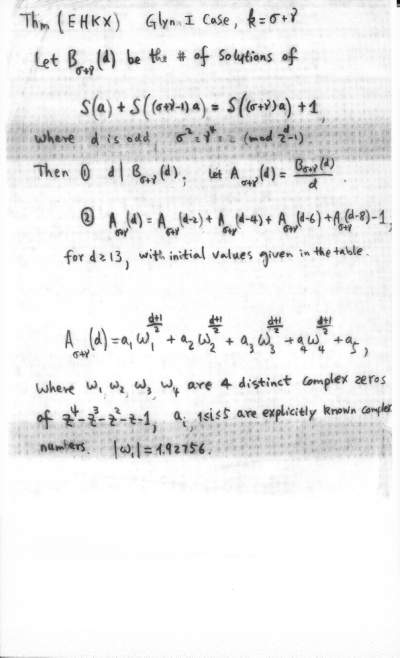 Thm (EHKX) Glyn I Case, k=σ+γ
Let B_{σ+γ}(d) be the # of solutions of
S(a) + S((σ+γ-1)a) = S((σ+γ)a) + 1
where d is odd σ²=γ⁴= 2 (mod 2^d-1)
Then ① d | B_{σ+γ}(d); Let A_{σ+γ}(d) = B_{σ+γ}(d)/d
② A_{σ+γ}(d) = A_{σ+γ}(d-2) + A_{σ+γ}(d-4) + A_{σ+γ}(d-6) + A_{σ+γ}(d-8) - 1,
for d≥13, with initial values given in the table.
A_{σ+γ}(d) = a₁ω₁^{(d+1)/2} + a₂ω₂^{(d+1)/2} + a₃ω₃^{(d+1)/2} + a₄ω₄^{(d+1)/2} + a₅,
where ω₁ ω₂ ω₃ ω₄ are 4 distinct complex zeros
of z⁴-z³-z²-z-1, a_i, 1≤i≤5 are explicitly known complex
numbers. |ω₁| = 1.92756.